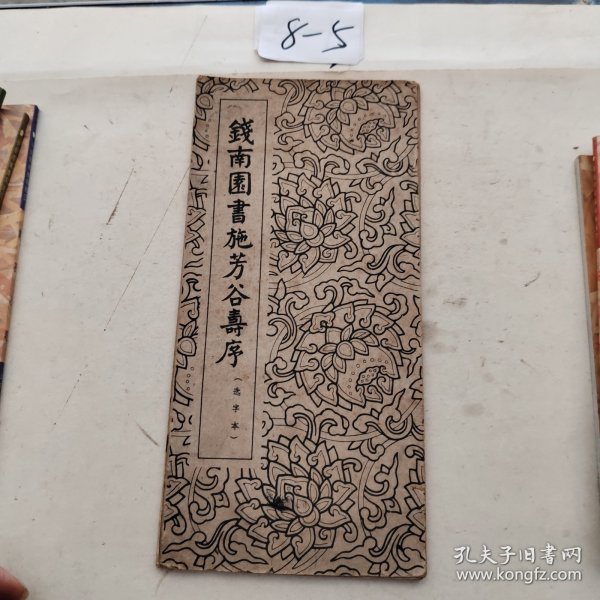 8-5
錢南園書施芳谷壽序
(选字本)
孔夫子旧书网
www.kongfz.com